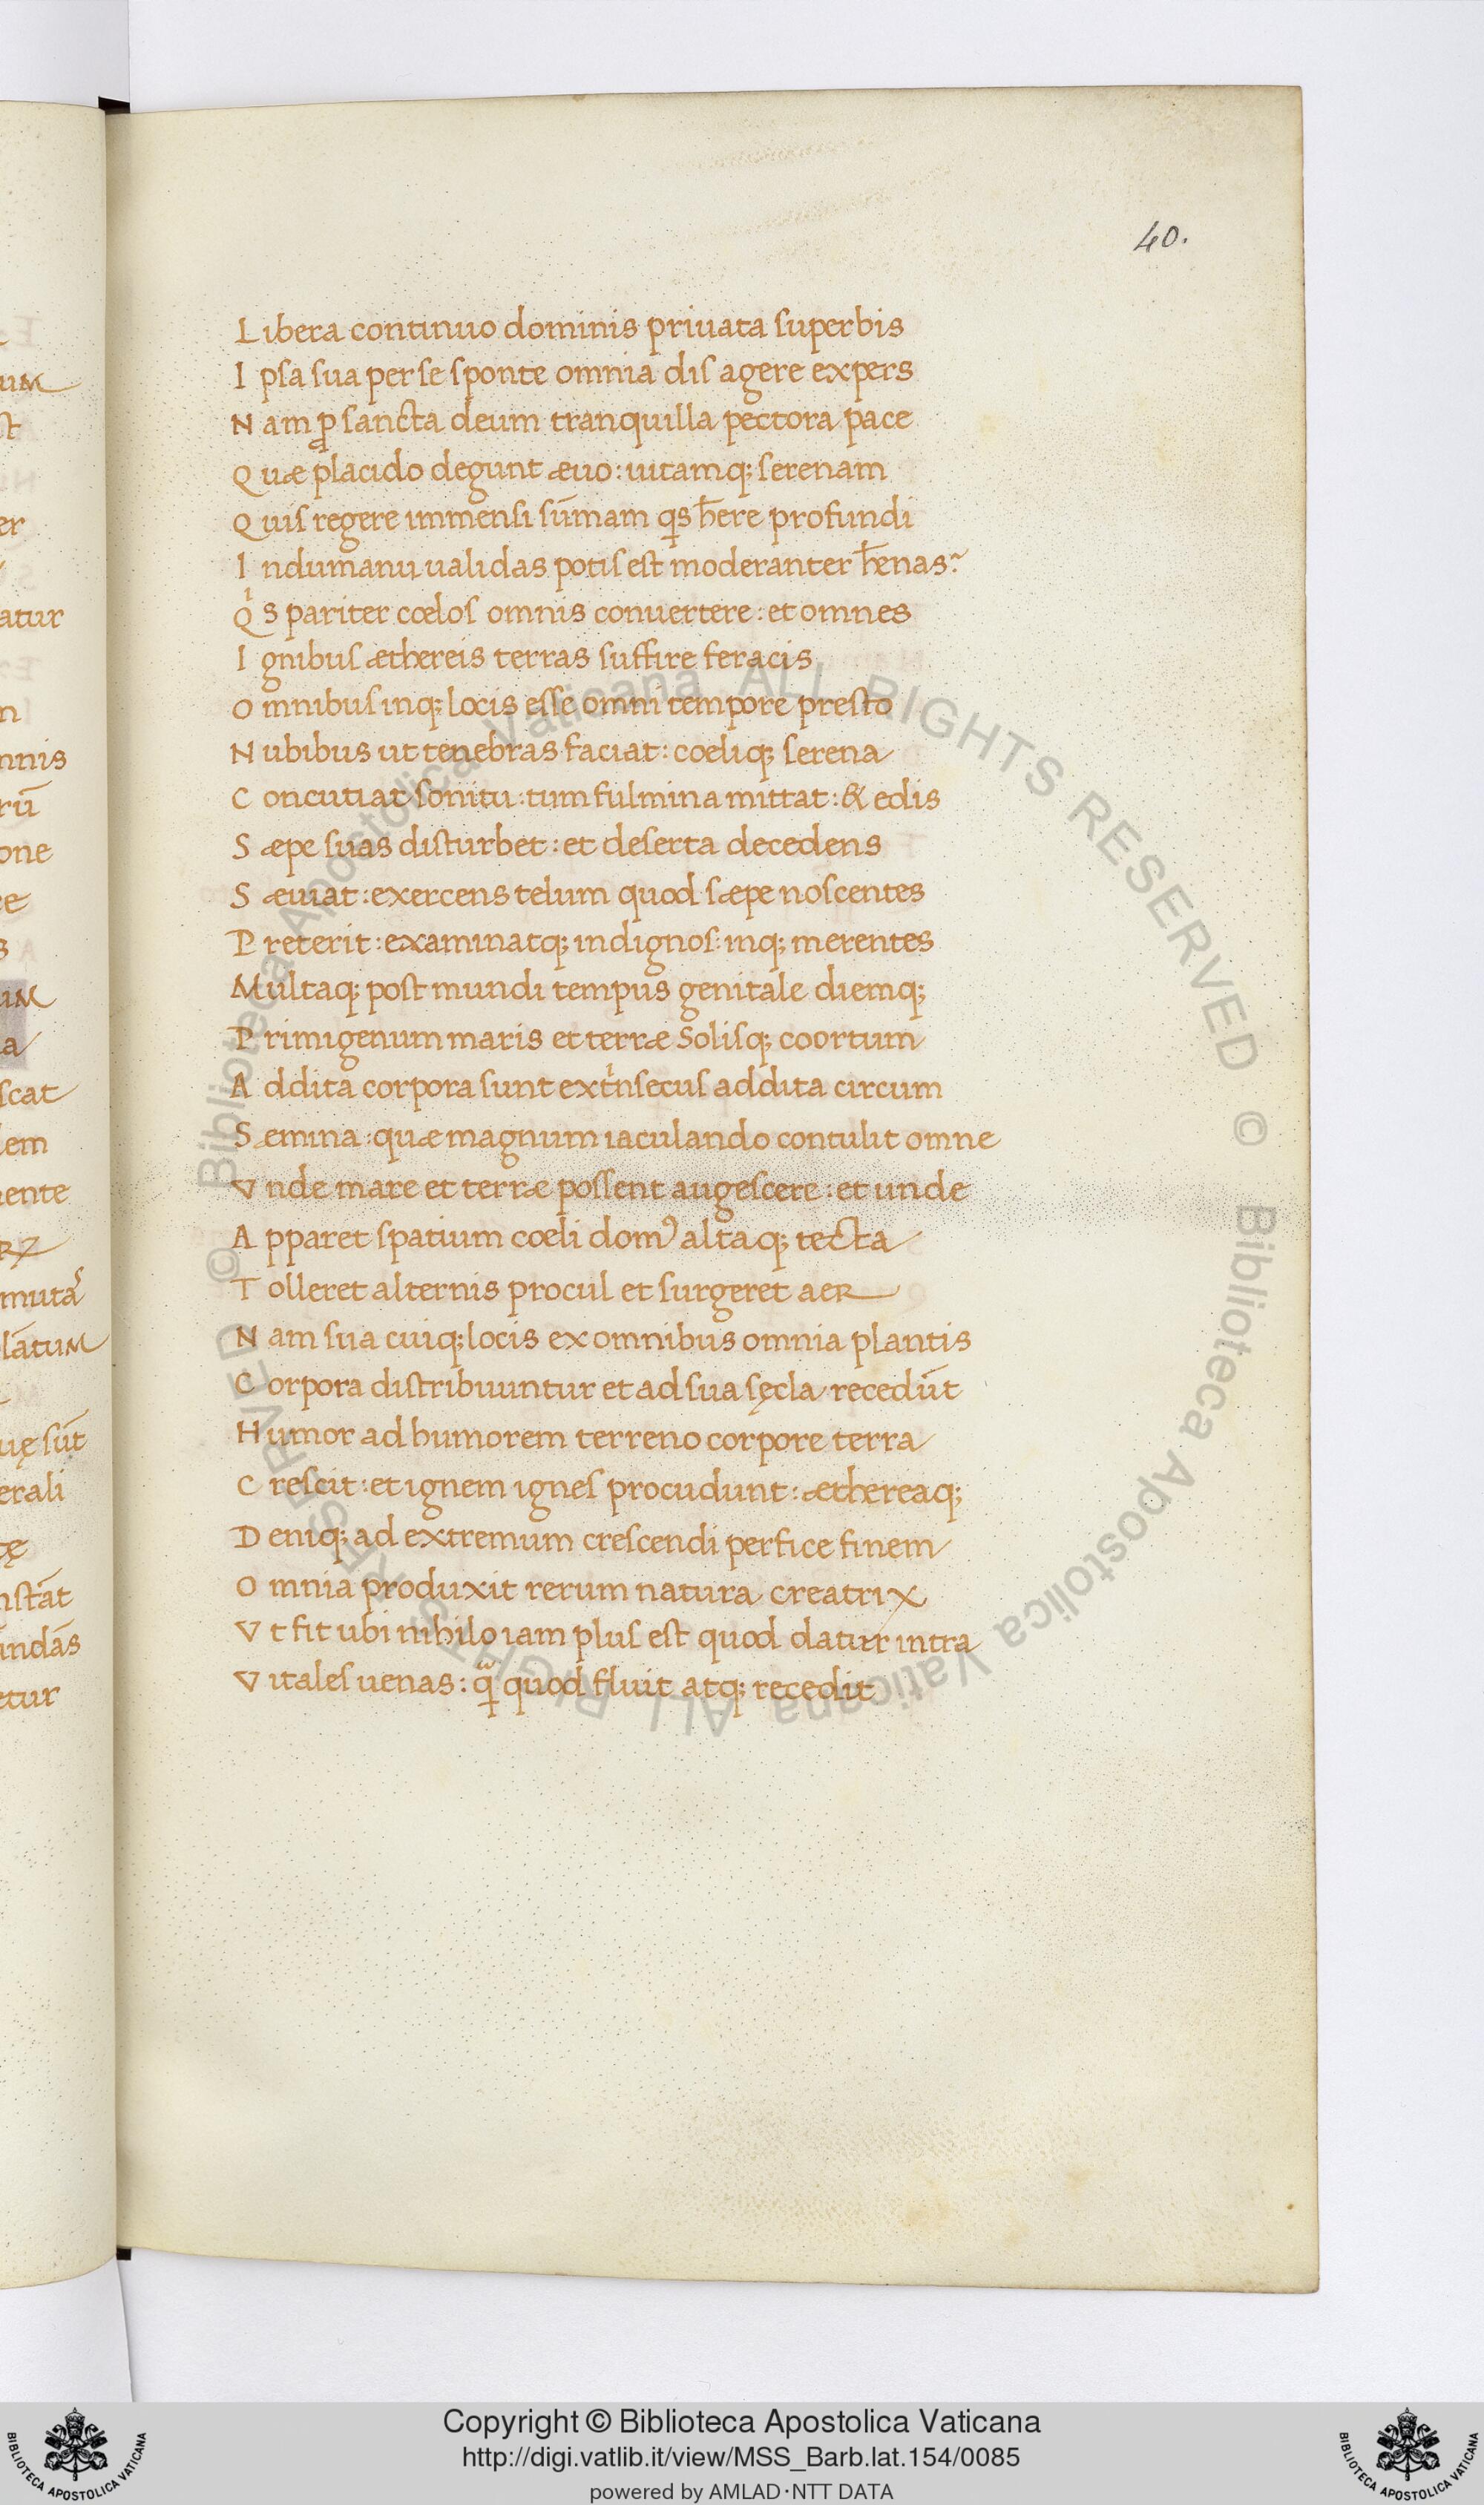 40.
Libera continuo dominis priuata superbis
Ipsa sua per se sponte omnia dis agere expers
Nam ꝓ sancta deum tranquilla pectora pace
Quæ placido degunt æuo: uitamq; serenam
Quis regere immensi sūmam qͥs h̄ere profundi
Indu manu ualidas potis est moderanter h̄enas?
Qͥs pariter cœlos omnis conuertere: et omnes
Ignibus æthereis terras suffire feracis
Omnibus inq; locis esse omni tempore presto
Nubibus ut tenebras faciat: coeliq; serena
Concutiat sonitu: tum fulmina mittat: & edis
Sæpe suas disturbet: et deserta decedens
Sæuiat: exercens telum quod sæpe noscentes
Preterit: examinatq; indignos: inq; merentes
Multaq; post mundi tempus genitale diemq;
Primigenum maris et terræ Solisq; coortum
Addita corpora sunt extͥnsecus addita circum
Sæmina: quæ magnum iaculando contulit omne
Vnde mare et terræ possent augescere: et unde
Apparet spatium cœli domꝰ altaq; tecta
Tolleret alternis procul et surgeret aer
Nam sua cuiq; locis ex omnibus omnia plantis
Corpora distribuuntur et ad sua sęcla recedūt
Humor ad humorem terreno corpore terra
Crescit: et ignem ignes procudunt: æthereaq;
Deniq; ad extremum crescendi perfice finem
Omnia produxit rerum natura creatrix
Vt fit ubi nihilo iam plus est quod datur intra
Vitales uenas: qͣ quod fluit atq; recedit
um
st
er
atur
n
mnis
rū
one
ce
s
um
a
scat
lem
ente
mutaͬ
lātum
uę sūt
erali
tę
nstāt
undās
etur
© Biblioteca Apostolica Vaticana ALL RIGHTS RESERVED © Biblioteca Apostolica Vaticana ALL RIGHTS RESERVED
Copyright © Biblioteca Apostolica Vaticana
http://digi.vatlib.it/view/MSS_Barb.lat.154/0085
powered by AMLAD·NTT DATA
BIBLIOTECA APOSTOLICA VATICANA
BIBLIOTECA APOSTOLICA VATICANA